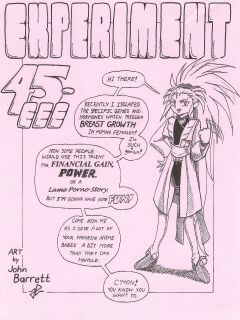 EXPERIMENT
45-EEE
HI THERE!
RECENTLY I ISOLATED
THE SPECIFIC GENES AND
HORMONES WHICH TRIGGER
BREAST GROWTH
IN HUMAN FEMALES!
I'M
SUCH A
genius!
NOW SOME PEOPLE
WOULD USE THIS TALENT
FOR FINANCIAL GAIN,
POWER
OR A
Lame Porno Story.
BUT I'M GONNA HAVE SOME FUN!
COME JOIN ME
AS I GIVE A LOT OF
YOUR FAVORITE ANIME
BABES A BIT MORE
THAN THEY CAN
HANDLE.
C'MON!
YOU KNOW YOU
WANT TO.
ART
by
John
Barrett